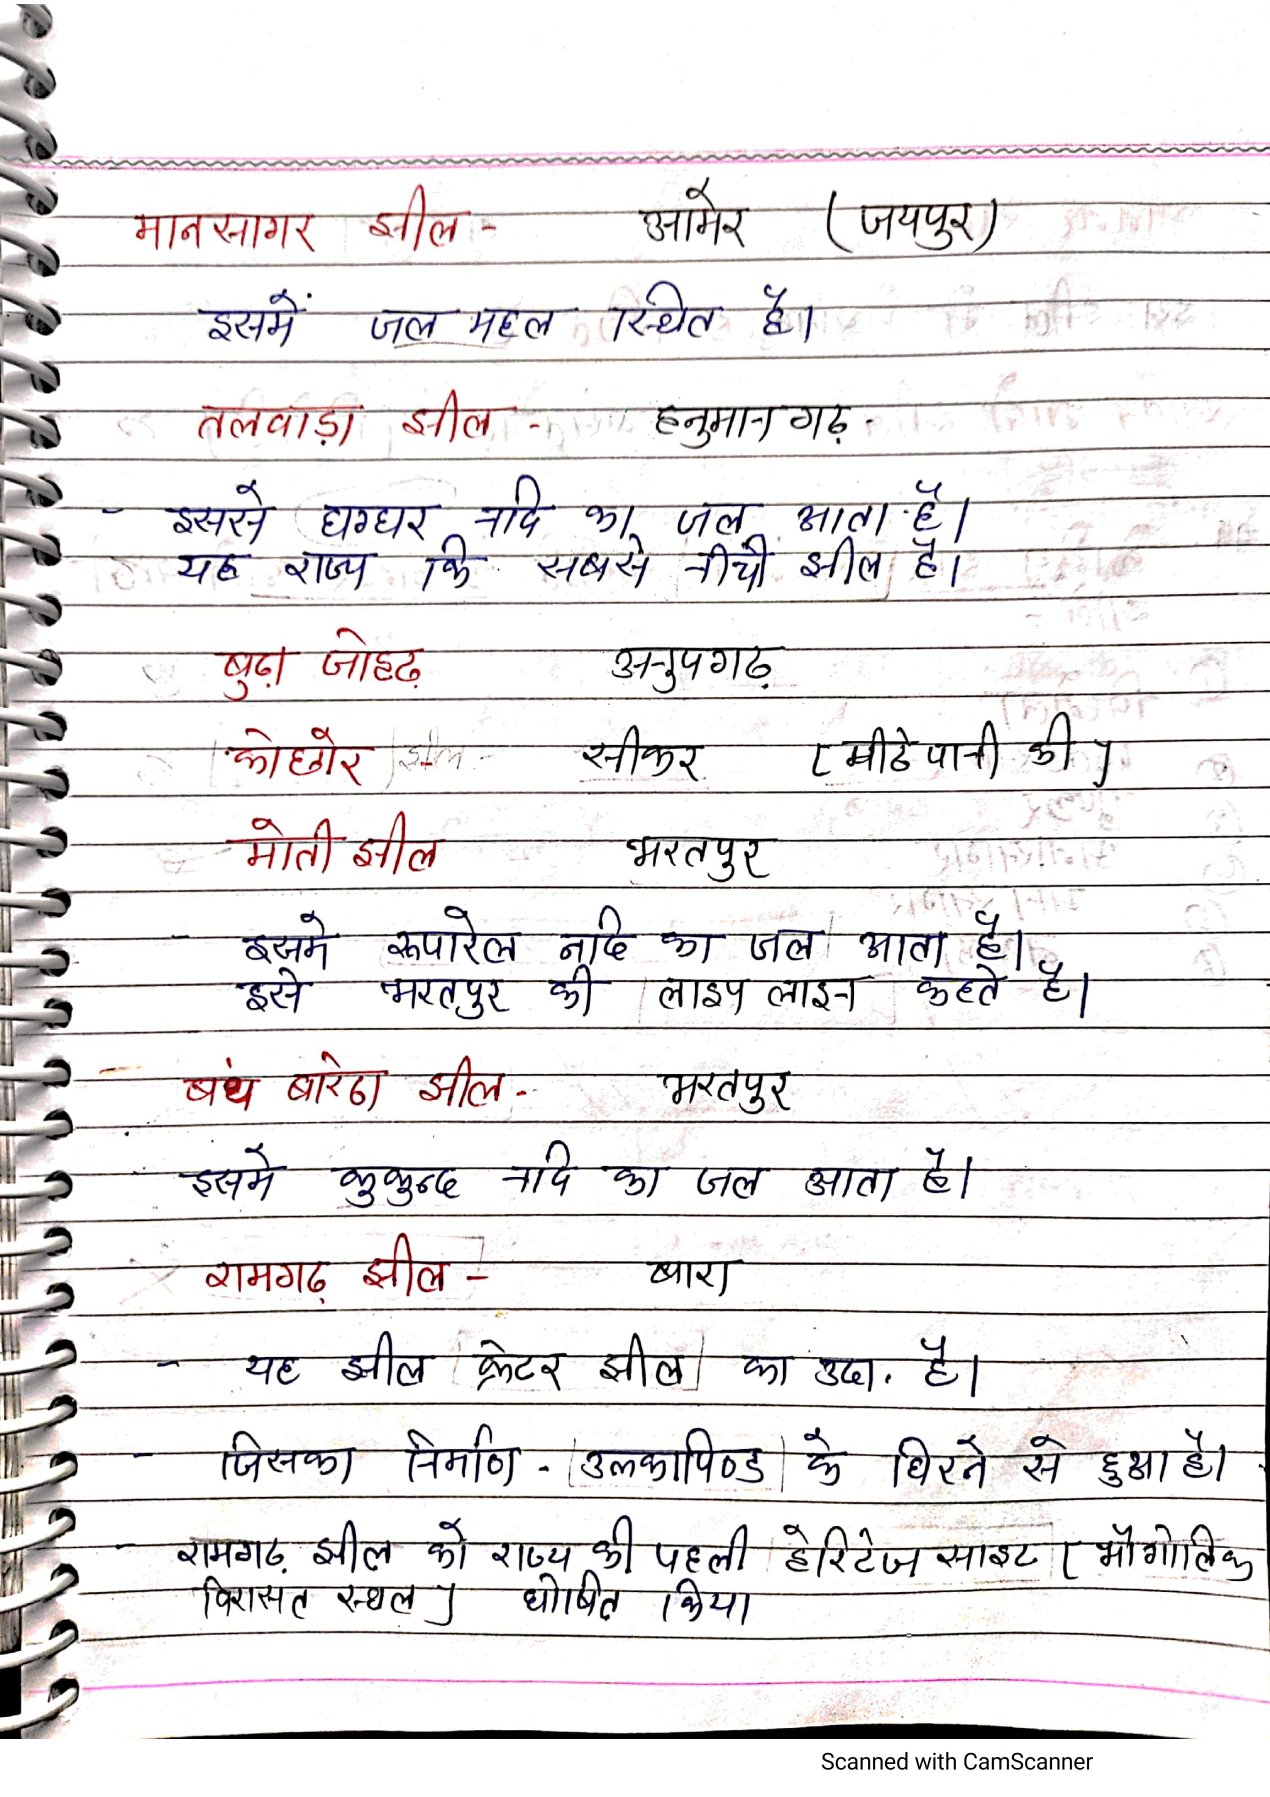 मानसागर झील - आमेर (जयपुर)
इसमें जल महल स्थित है।
तलवाड़ा झील - हनुमानगढ़ -
- इसमे घग्घर नदि का जल आता है।
यह राज्य कि सबसे नीची झील है।
बुढ़ा जोहढ़ अनुपगढ़
कोछोर झील - सीकर [मीठे पानी की]
मोती झील भरतपुर
- इसमे रूपारेल नदि का जल आता है।
इसे भरतपुर की लाइप लाइन कहते है।
बंध बारेठा झील - भरतपुर
इसमे कुकुन्द नदि का जल आता है।
रामगढ़ झील - बारा
- यह झील क्रेटर झील का उदा. है।
- जिसका निर्माण - उलकापिण्ड के घिरने से हुआ है।
- रामगढ़ झील को राज्य की पहली हेरिटेज साइट [भौगोलिक
विरासत स्थल] घोषित किया
Scanned with CamScanner